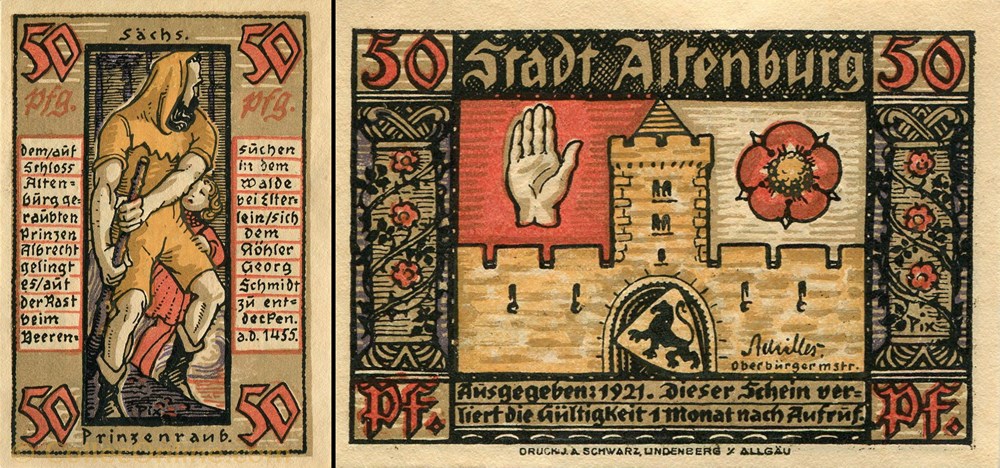 50 Sächs. 50
pfg. pfg.
dem/auf
Schloss
Alten=
burg ge=
raubten
Prinzen
Albrecht
gelingt
es/auf
der Rast
beim
Beeren=
süchen
in dem
Walde
bei Elter=
lein/sich
dem
Köhler
Georg
Schmidt
zu ent=
decken.
a.d. 1455.
Pix
50 50
Prinzenraub.
50 Stadt Altenburg 50
Pix
Schiller.
Oberbürgermstr.
Ausgegeben: 1921. Dieser Schein ver=
liert die Gültigkeit 1 Monat nach Aufruf.
Pf. Pf.
DRUCK: J. A. SCHWARZ, LINDENBERG I/ ALLGÄU